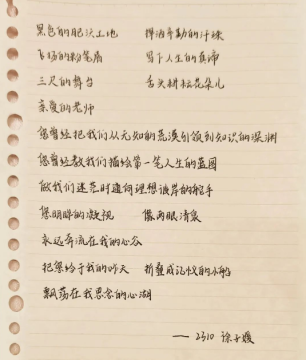 黑色的肥沃土地 挥洒辛勤的汗珠
飞扬的粉笔屑 写下人生的真谛
三尺的舞台 舌头耕耘花朵儿
亲爱的老师
您曾经把我们从无知的荒漠引领到知识的深渊
您曾经教我们描绘第一笔人生的蓝图
做我们迷茫时通向理想彼岸的船手
您明眸的凝视 像两眼清泉
永远奔流在我的心谷
把您给于我的昨天 折叠成记忆的小船
飘荡在我思念的心湖
—— 2310 徐子媛